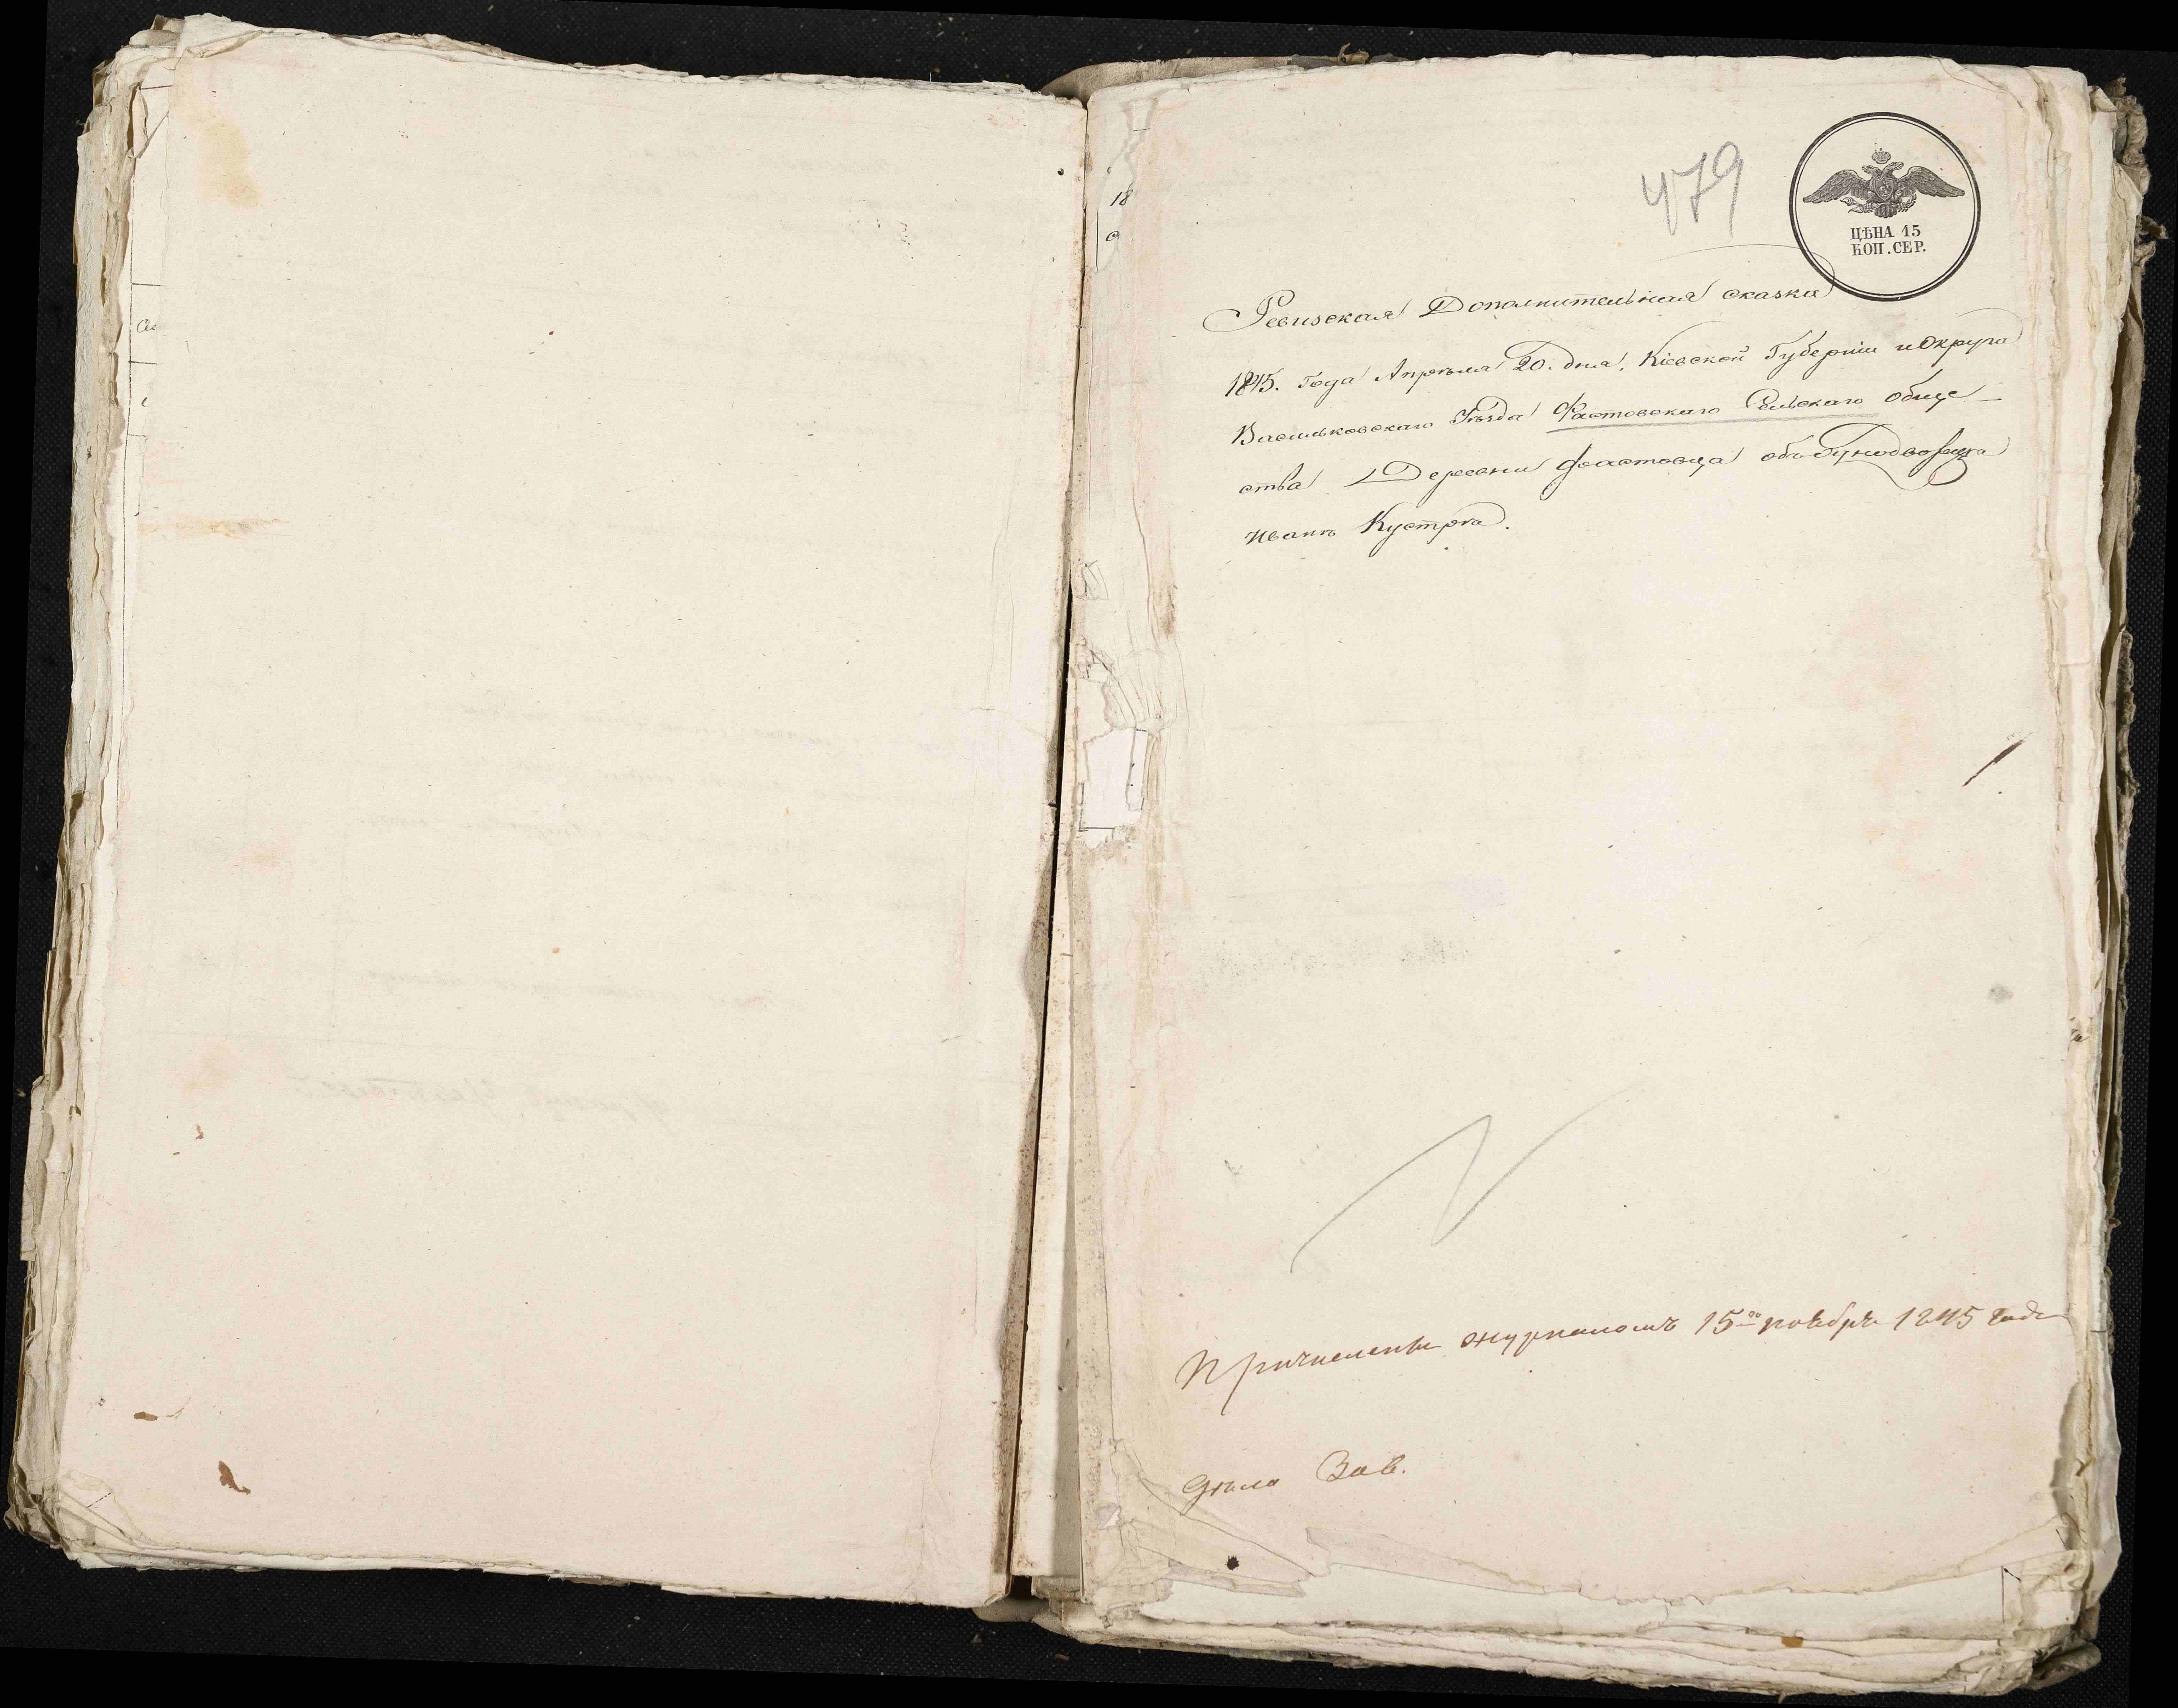 479
ЦѢНА 15
КОП. СЕР.
Ревизская Дополнительная сказка
1845. Года Апреля 20. дня, Кіевской Губерніи и Округа
Васильковскаго Уѣзда Фастовскаго Сельскаго обще-
ства Деревни Фастовца объ Однодворцѣ
Иванѣ Кустрѣ.
Причислены журналомъ 15го ноября 1845 года
дѣло Зав.
18